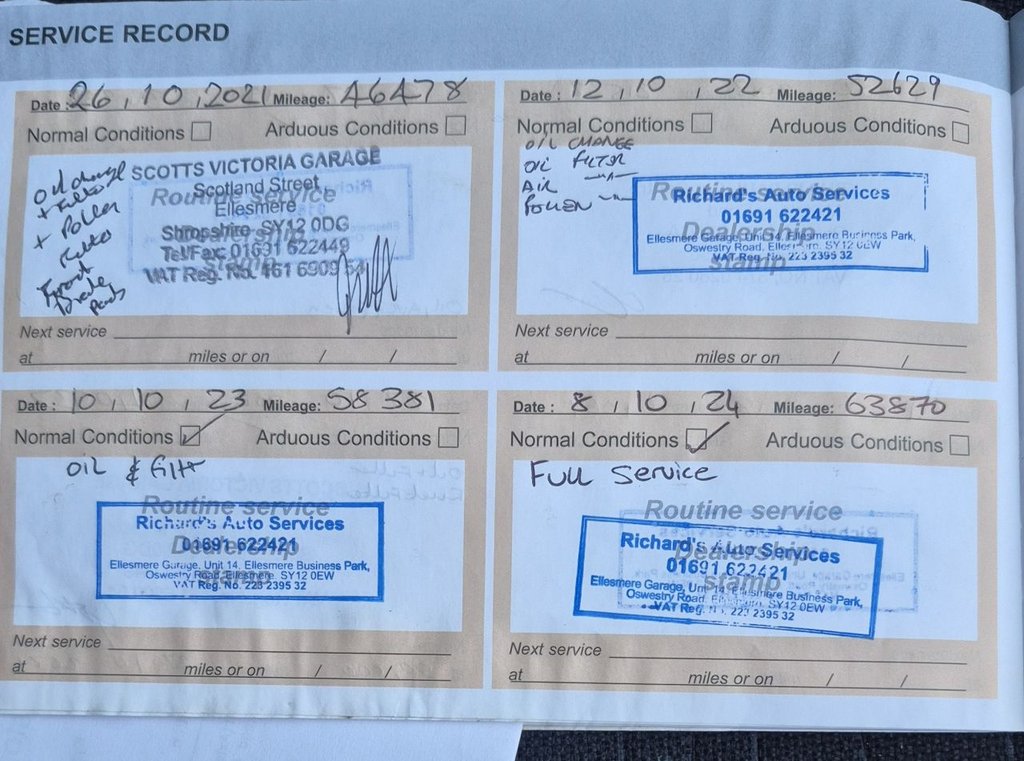 SERVICE RECORD
Date : 26 , 10 , 2021 Mileage: 46478
Normal Conditions Arduous Conditions
Oil change
+ Filter
+ Pollen
Filter
Front
Brake
Pads
Routine service
SCOTTS VICTORIA GARAGE
Scotland Street,
Ellesmere
Shropshire SY12 0DG
Tel/Fax: 01691 622449
VAT Reg. No. 161 6909 54
Next service
at miles or on / /
Date : 12 , 10 , 22 Mileage: 52629
Normal Conditions Arduous Conditions
OIL CHANGE
OIL FILTOR
AIR -"-
POLLEN -"-
Routine service
Dealership
stamp
Richard's Auto Services
01691 622421
Ellesmere Garage, Unit 14, Ellesmere Business Park,
Oswestry Road, Ellesmere, SY12 0EW
VAT Reg. No. 223 2395 32
Next service
at miles or on / /
Date : 10 , 10 , 23 Mileage: 58381
Normal Conditions Arduous Conditions
OIL & Filtr
Routine service
Dealership
stamp
Richard's Auto Services
01691 622421
Ellesmere Garage, Unit 14, Ellesmere Business Park,
Oswestry Road, Ellesmere, SY12 0EW
VAT Reg. No. 223 2395 32
Next service
at miles or on / /
Date : 8 , 10 , 24 Mileage: 63870
Normal Conditions Arduous Conditions
FULL Service
Routine service
Dealership
stamp
Richard's Auto Services
01691 622421
Ellesmere Garage, Unit 14, Ellesmere Business Park,
Oswestry Road, Ellesmere, SY12 0EW
VAT Reg. No. 223 2395 32
Next service
at miles or on / /